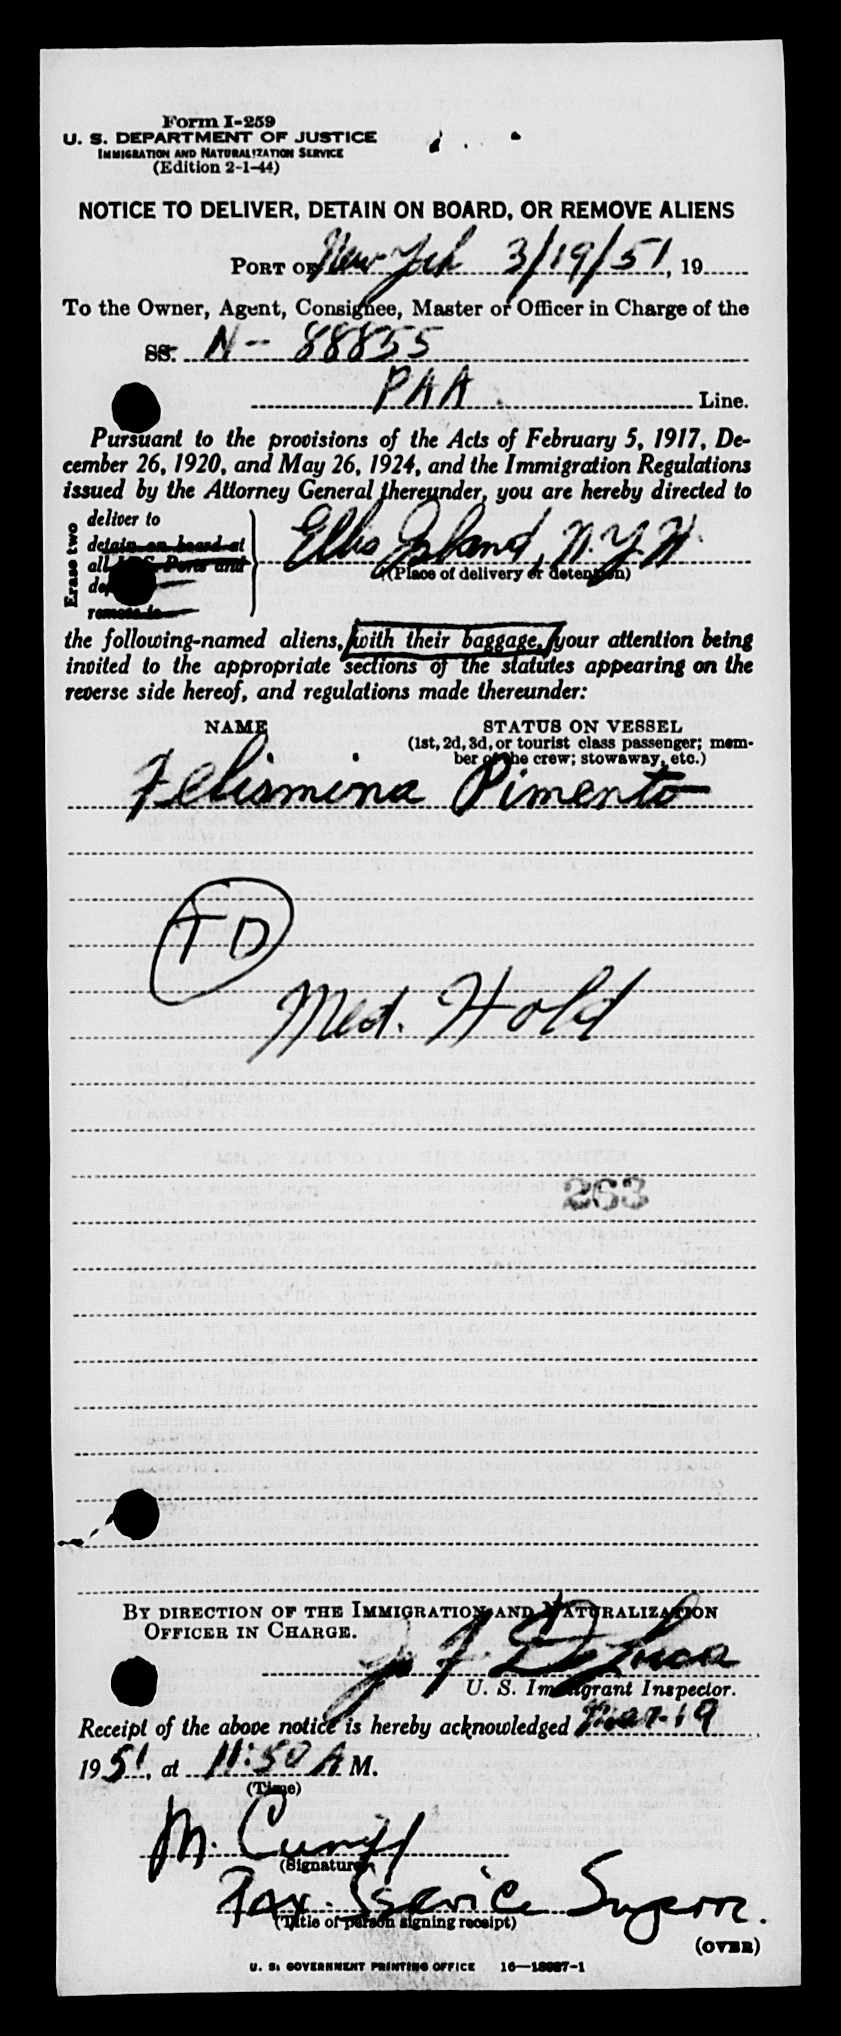 Form I-259
U. S. DEPARTMENT OF JUSTICE
IMMIGRATION AND NATURALIZATION SERVICE
(Edition 2-1-44)
NOTICE TO DELIVER, DETAIN ON BOARD, OR REMOVE ALIENS
PORT OF New York 3/19/51, 19
To the Owner, Agent, Consignee, Master or Officer in Charge of the
SS. N- 88855
PAA Line.
Pursuant to the provisions of the Acts of February 5, 1917, De-
cember 26, 1920, and May 26, 1924, and the Immigration Regulations
issued by the Attorney General thereunder, you are hereby directed to
Erase two
deliver to
detain on board at
all U. S. Ports and
remove to
Ellis Island, N.Y.H.
(Place of delivery or detention)
the following-named aliens, with their baggage, your attention being
invited to the appropriate sections of the statutes appearing on the
reverse side hereof, and regulations made thereunder:
NAME STATUS ON VESSEL
(1st, 2d, 3d, or tourist class passenger; mem-
ber of the crew; stowaway, etc.)
Felismina Pimento
TD
Med. Hold
263
BY DIRECTION OF THE IMMIGRATION AND NATURALIZATION
OFFICER IN CHARGE.
U. S. Immigrant Inspector.
Receipt of the above notice is hereby acknowledged Mar-19
1951, at 11:50 A M.
(Time)
M.
(Signature)
Pax. Service Superv.
(Title of person signing receipt)
(OVER)
U. S. GOVERNMENT PRINTING OFFICE